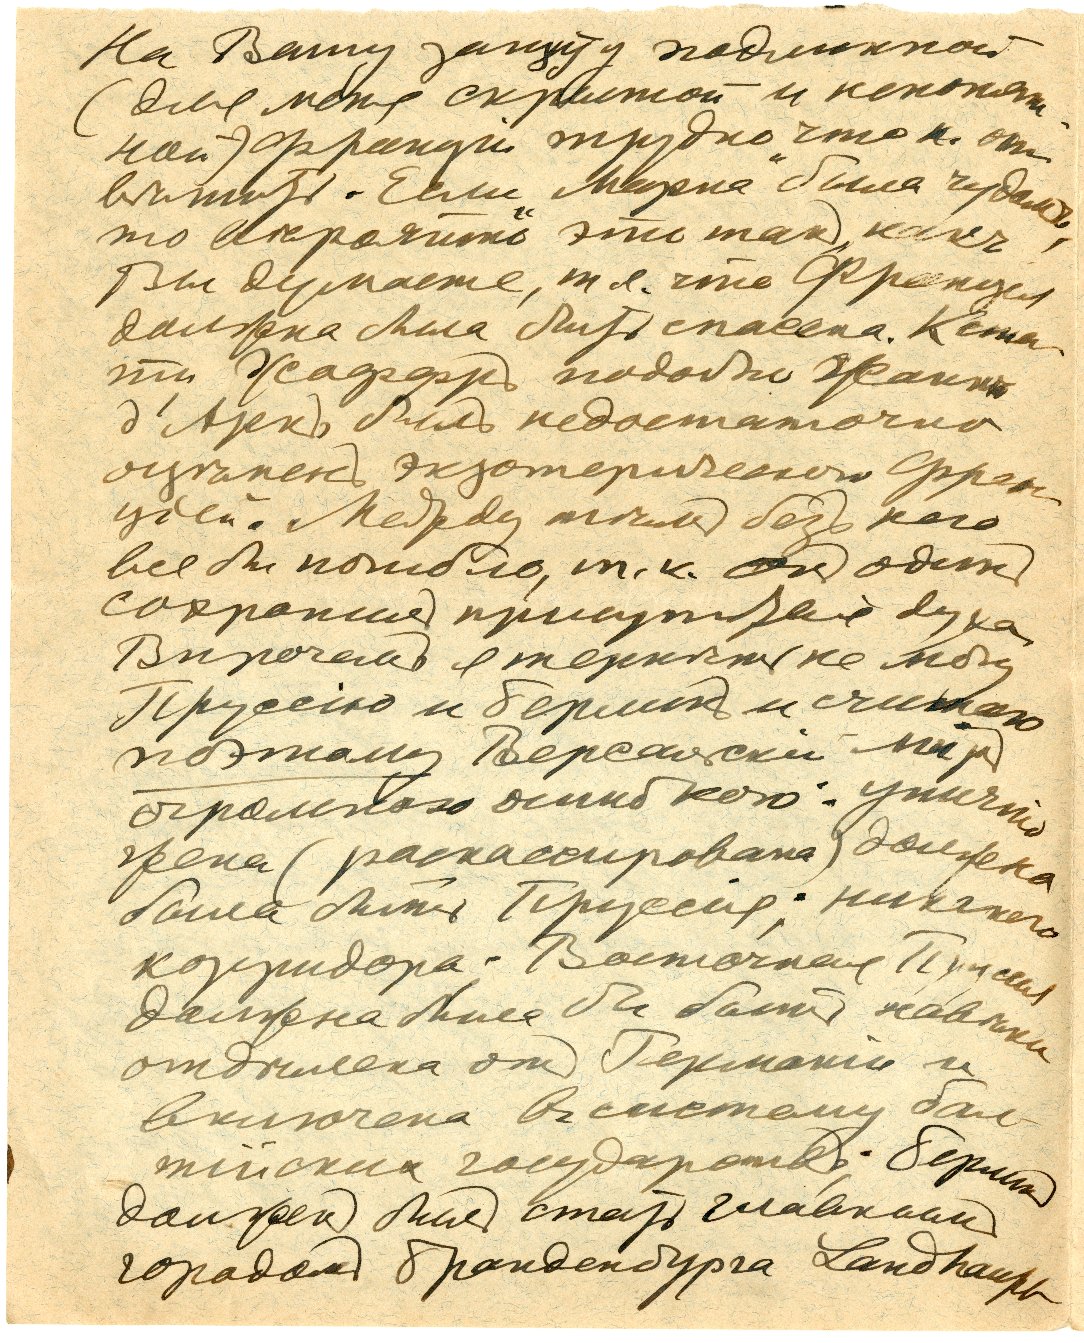 На Вашу защиту подлинной
(для меня скрытой и непонят-
ной) Франціи трудно что н. от-
вѣтить. Если „Марна" была чудомъ,
то вѣроятно это такъ, какъ
Вы думаете, т.е. что Франція
должна была быть спасена. Кста-
ти, Жоффръ подобно Жаннѣ
д'Аркъ былъ недостаточно
оцѣненъ экзотерической Фран-
ціей. Между тѣмъ безъ него
все бы погибло, т.к. онъ одинъ
сохранилъ присутствіе духа.
Впрочемъ я терпѣть не могу
Пруссію и Берлинъ и считаю
поэтому Версальскій миръ
огромною ошибкою: уничто
жена (раскассирована) должна
была быть Пруссія; никакого
корридора. Восточная Пруссія
должна была бы быть навѣки
отдѣлена отъ Германіи и
включена въ систему бал-
тійскихъ государствъ. Берлинъ
долженъ былъ стать главнымъ
городомъ Бранденбурга Landhaupt-